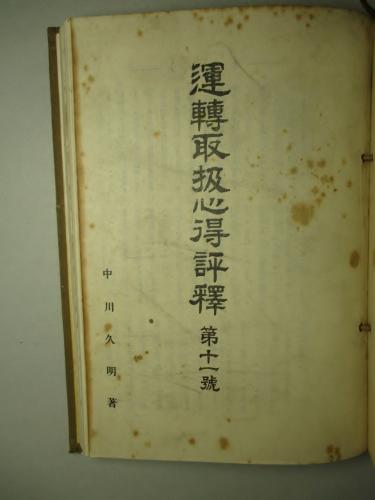 運轉取扱心得評釋 第十一號
中川久明著